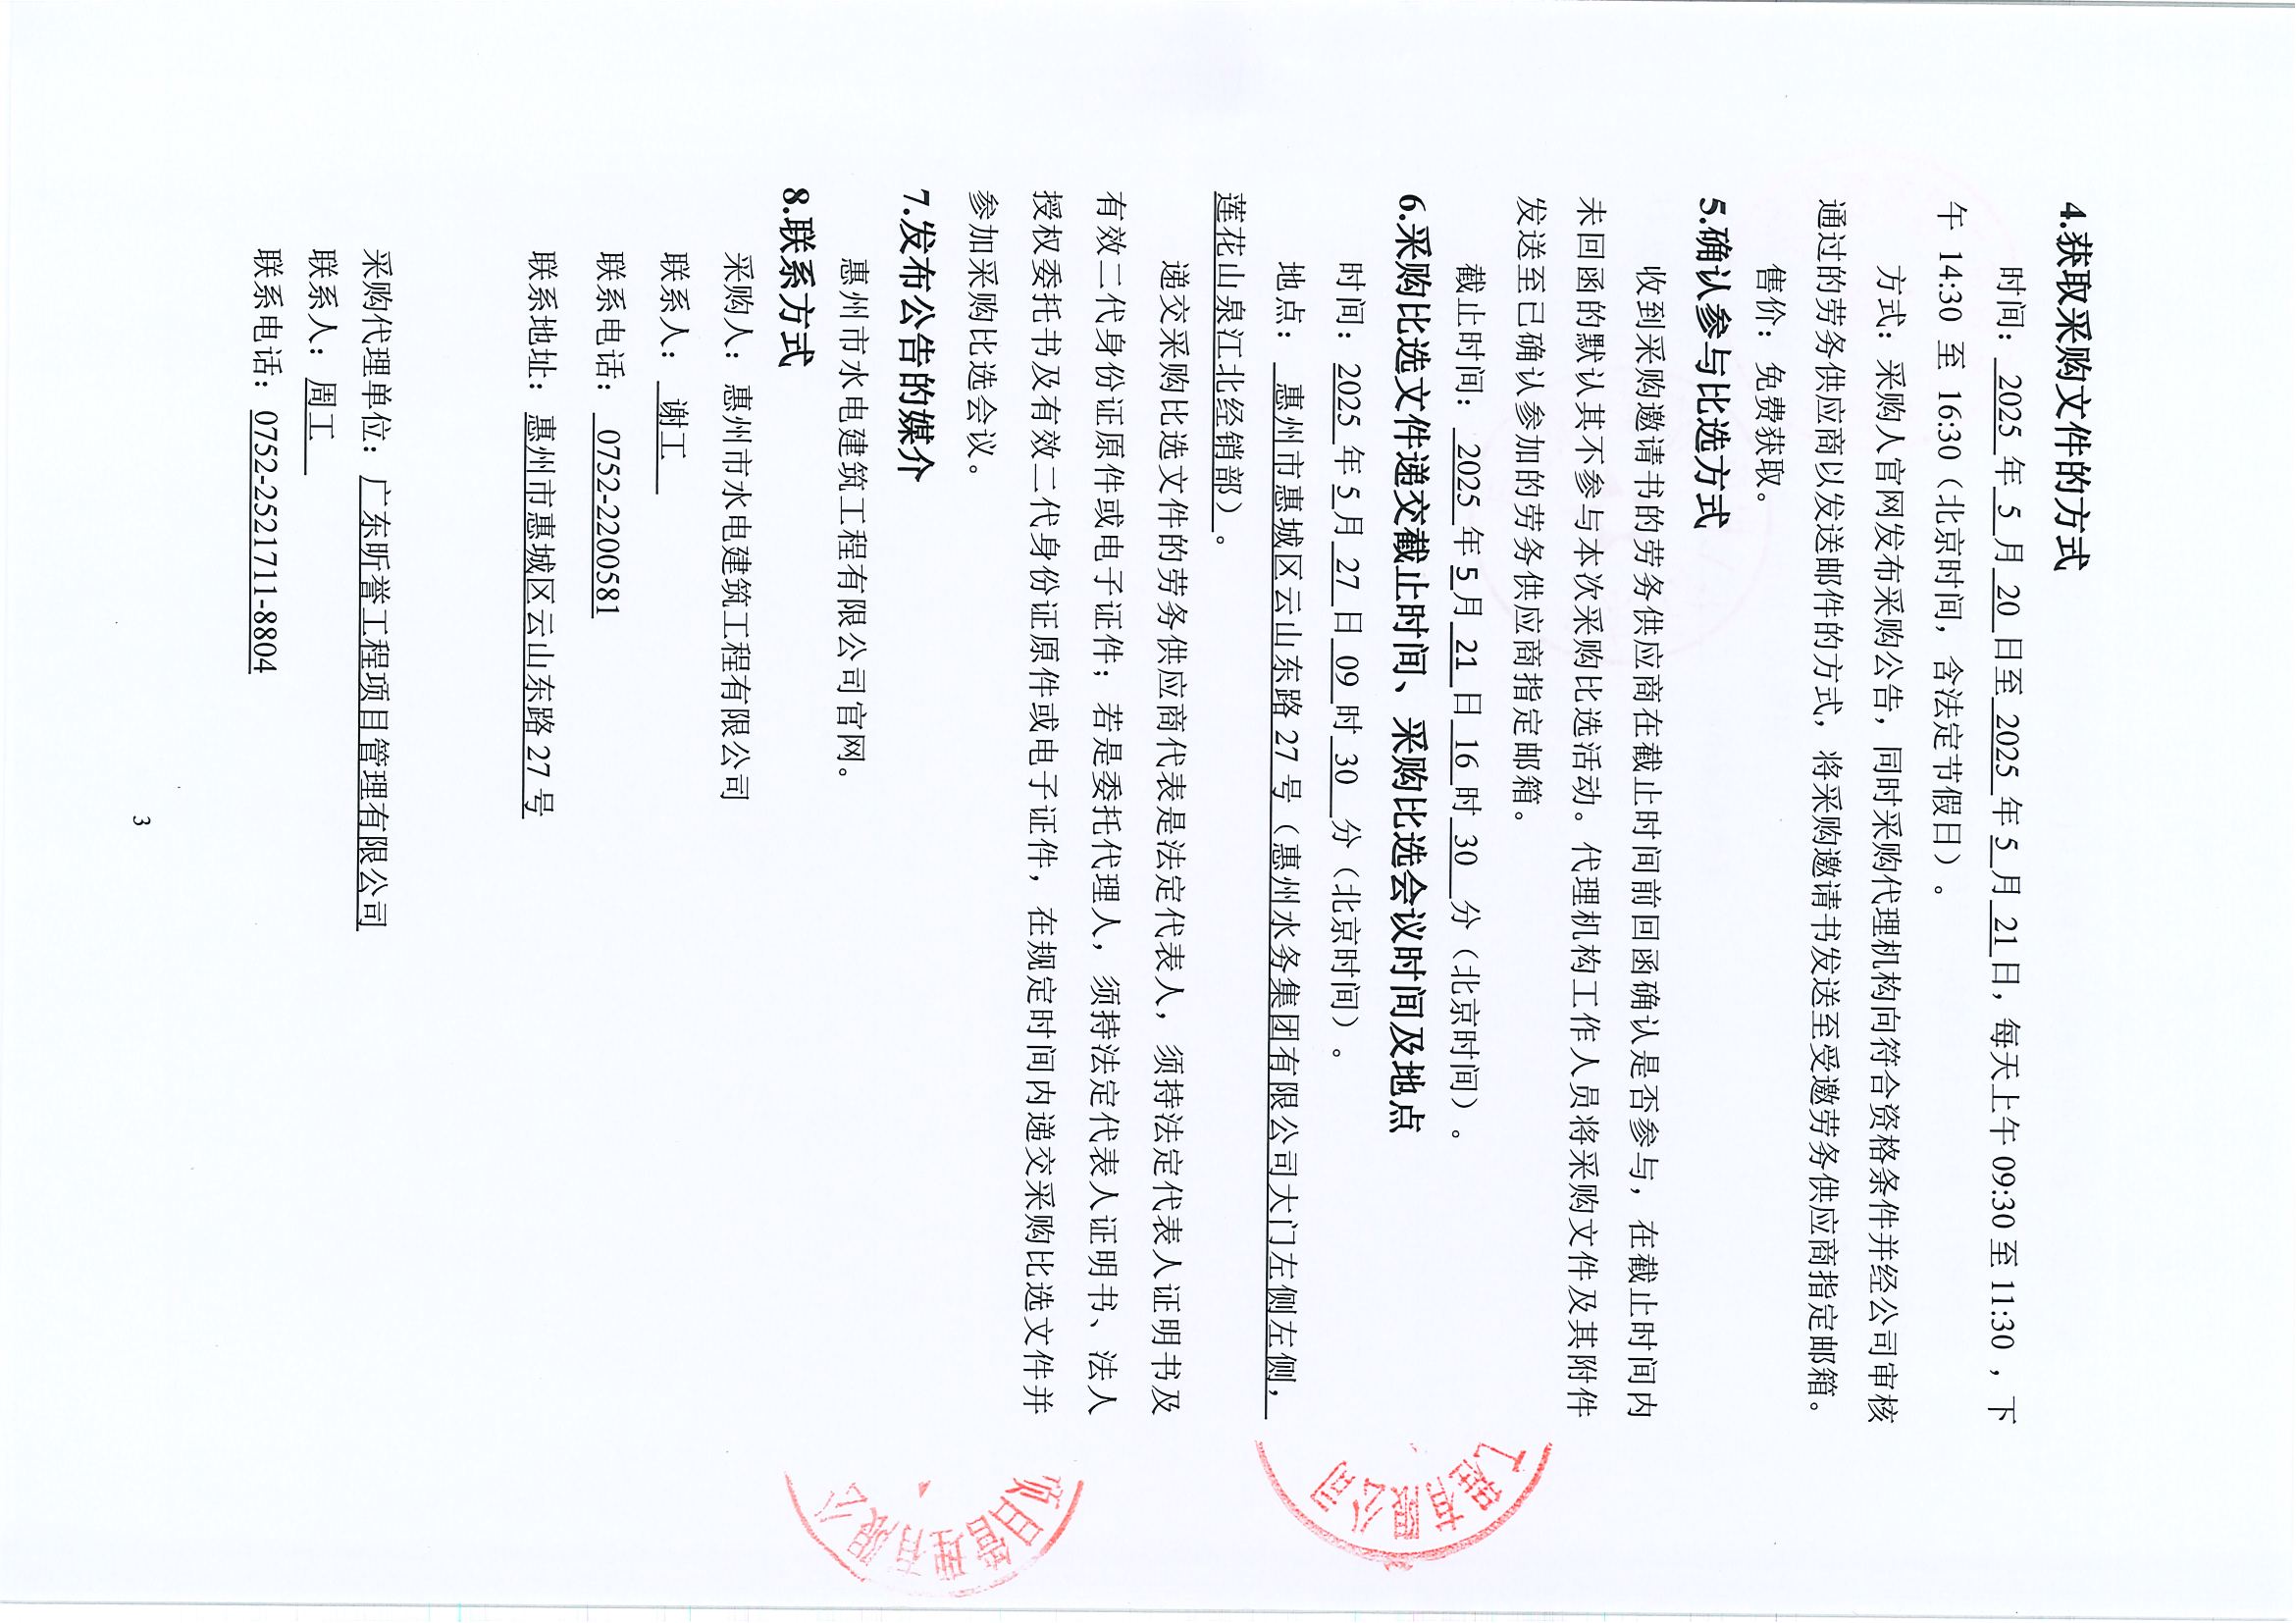 4.获取采购文件的方式
时间： 2025 年 5 月 20 日至 2025 年 5 月 21 日，每天上午 09:30 至 11:30 ，下
午 14:30 至 16:30（北京时间，含法定节假日）。
方式：采购人官网发布采购公告，同时采购代理机构向符合资格条件并经公司审核
通过的劳务供应商以发送邮件的方式，将采购邀请书发送至受邀劳务供应商指定邮箱。
售价：免费获取。
5.确认参与比选方式
收到采购邀请书的劳务供应商在截止时间前回函确认是否参与，在截止时间内
未回函的默认其不参与本次采购比选活动。代理机构工作人员将采购文件及其附件
发送至已确认参加的劳务供应商指定邮箱。
截止时间： 2025 年 5 月 21 日 16 时 30 分（北京时间）。
6.采购比选文件递交截止时间、采购比选会议时间及地点
时间：2025 年 5 月 27 日 09 时 30 分（北京时间）。
地点： 惠州市惠城区云山东路 27 号（惠州水务集团有限公司大门左侧左侧，
莲花山泉江北经销部）。
递交采购比选文件的劳务供应商代表是法定代表人，须持法定代表人证明书及
有效二代身份证原件或电子证件；若是委托代理人，须持法定代表人证明书、法人
授权委托书及有效二代身份证原件或电子证件，在规定时间内递交采购比选文件并
参加采购比选会议。
7.发布公告的媒介
惠州市水电建筑工程有限公司官网。
8.联系方式
采购人：惠州市水电建筑工程有限公司
联系人： 谢工
联系电话： 0752-2200581
联系地址：惠州市惠城区云山东路 27 号
采购代理单位：广东昕誉工程项目管理有限公司
联系人：周工
联系电话：0752-2521711-8804
工程有限公司
项目管理有限公
3